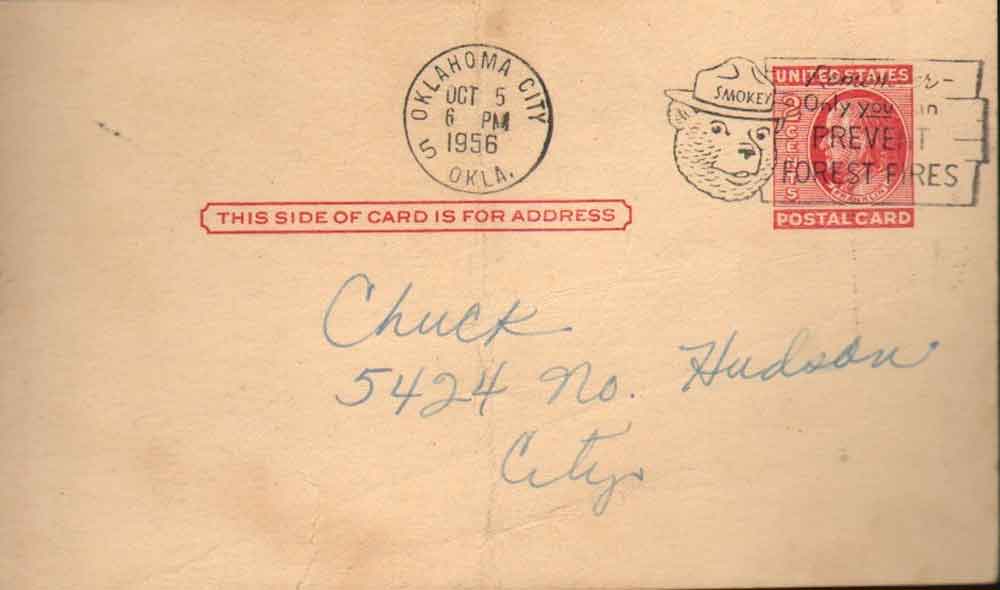 OKLAHOMA CITY
OCT 5
6 PM
1956
5 OKLA.
SMOKEY
Remember-
Only you can
PREVENT
FOREST FIRES
UNITED STATES
2 CENTS
FRANKLIN
POSTAL CARD
THIS SIDE OF CARD IS FOR ADDRESS
Chuck
5424 No. Hudson
City